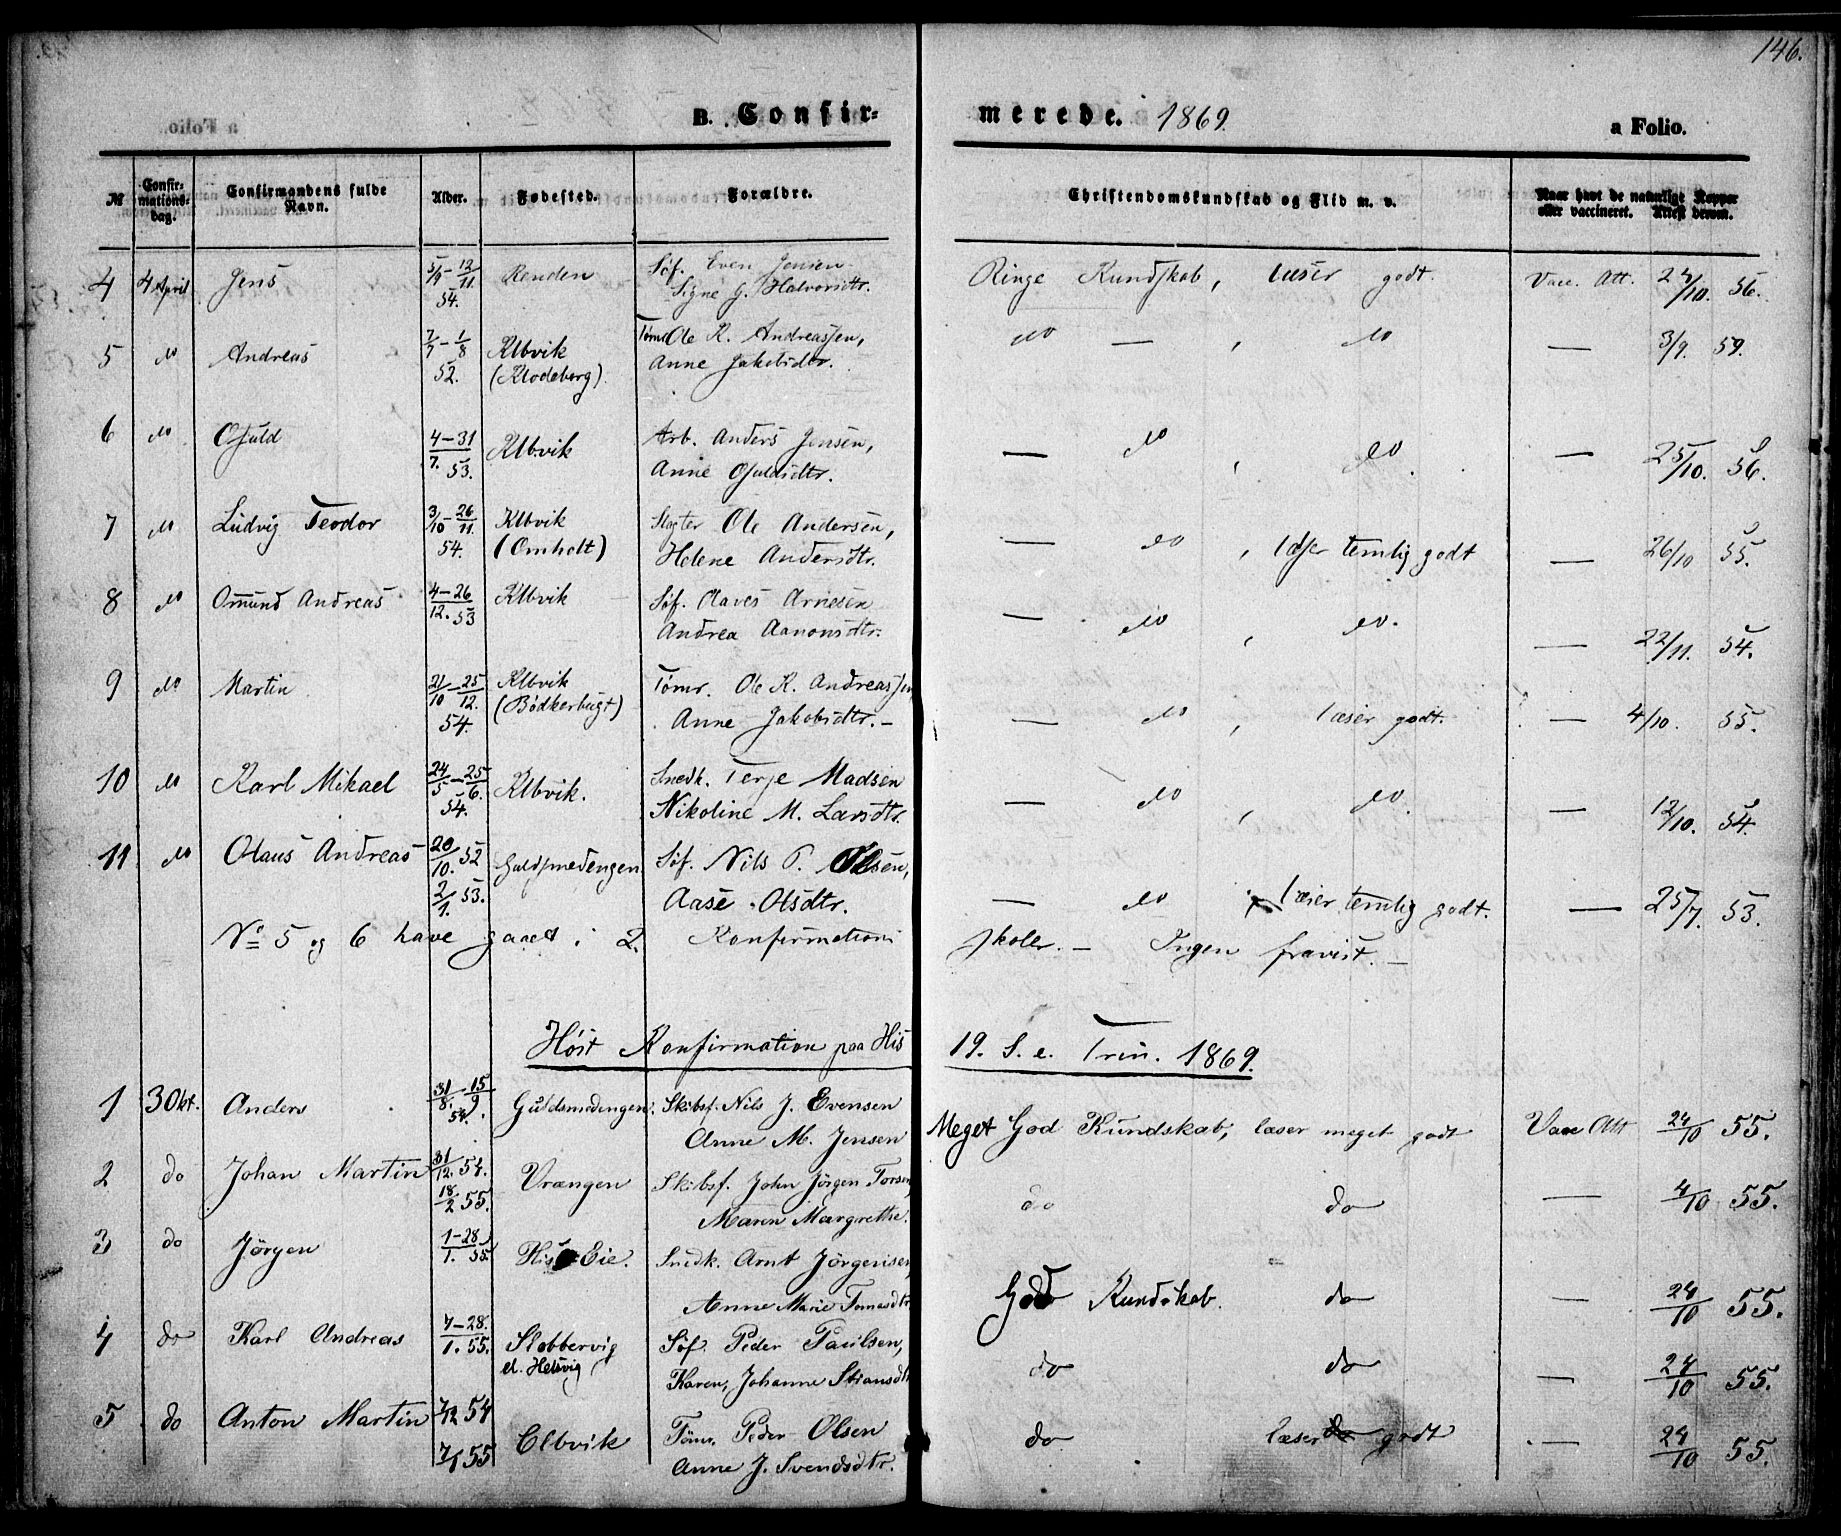 146.
B. Confir-
merede. 1869.
a Folio.
№
Confir-
mations-
dag.
Confirmandens fulde
Navn.
Alder.
Fødested.
Forældre.
Christendomskundskab og Flid m. v.
Naar havt de naturlige Kopper
eller vaccineret. Attest derom.
4 4 April Jens 5/9 - 12/11. 54. Renden Søf. Even Jensen Ringe Kundskab, læser godt. Vacc. Att. 24/10. 56.
Signe G. Halvorsdtr.
5 do Andreas 7/7 - 1/8 52. Klbvik Tømr Ole K. Andreassen, do — , do — 3/9. 59.
(Klodeborg). Anne Jakobsdtr.
6 do Osuld 4-31/7. 53. Klbvik Arb. Anders Jensen, — do , do. — 25/10. 56.
Anne Osuldsdtr.
7 do Ludvig Teodor 3/10 - 26/11. 54. Klbvik Slagter Ole Andersen, — do , læser temlig godt — 26/10 55.
(Omholt) Helene Andersdtr.
8 do Omund Andreas 4-26/12. 53 Klbvik Søf. Olaves Arnesen — do , do. — 22/11. 54.
Andrea Aanonsdtr.
9 do Martin 21/10 - 25/12. 54. Klbvik Tømr. Ole K. Andreassen — do , læser godt. — 4/10. 55.
(Bødkerbugt) Anne Jakobsdtr. —
10 do Karl Mikael 24/5 - 25/6. 54. Klbvik. Snedk. Terje Madsen — do , do. — 12/10. 54.
Nikoline M. Larsdtr.
11 do Olaus Andreas 20/10. 52 2/1. 53. Guldsmedengen Søf. Nils P. Olsen, — do , læser temlig godt. — 25/7. 53.
Aase Olsdtr.
No 5 og 6 have gaaet i 2 Konfirmations skoler. — Ingen fravist. —
Høst Konfirmation paa His 19. S. e. Trin. 1869.
1 3 Okt. Anders 31/8. - 15/9. 54. Guldsmedengen. Skibsf. Nils J. Evensen Meget God Kundskab, læser meget godt Vacc Att 24/10 55.
Anne M. Jensen
2 do Johan Martin 31/12. 54. 18/2 55. Vrængen Skibsf. John Jörgen Torsen do do — 4/10 55.
Maren Margrethe.
3 do Jörgen 1-28/1. 55. His Eie. Snedk. Arnt Jörgensen God Kundskab. do — 24/10 55.
Anne Marie Tomasdtr
4 do Karl Andreas 7-28./1. 55. Slobbervig Söf. Peder Paulsen, do do — 24/10 55.
el. Helsvig Karen Johanne Stiansdtr
5 do Anton Martin 7/12 54 7/1 55 Elbvik Tömr. Peder Olsen do læser godt — 24/10 55.
Anne J. Svendsdtr.